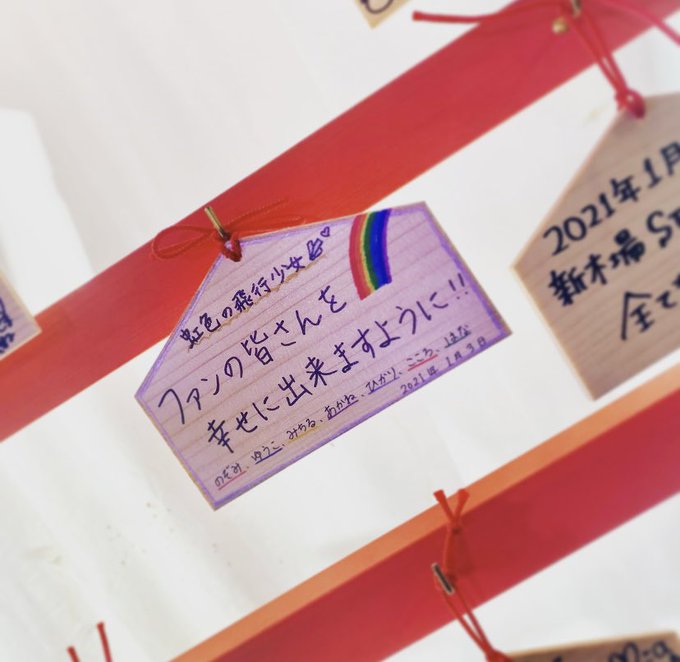 虹色の飛行少女
ファンの皆さんを
幸せに出来ますように!!
のぞみ、ゆうこ、みちる、あかね、ひかり、こころ、はな
2021年 1月3日
2021年1月
新木場S
全て